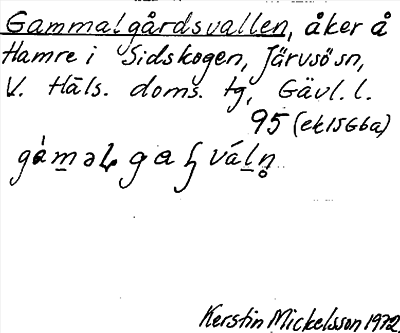 Gammalgårdsvallen, åker å
Hamre i Sidskogen, Järvsö sn,
V. Häls. doms. tg, Gävl. l.
95 (ek15G6a)
Kerstin Mickelsson 1972